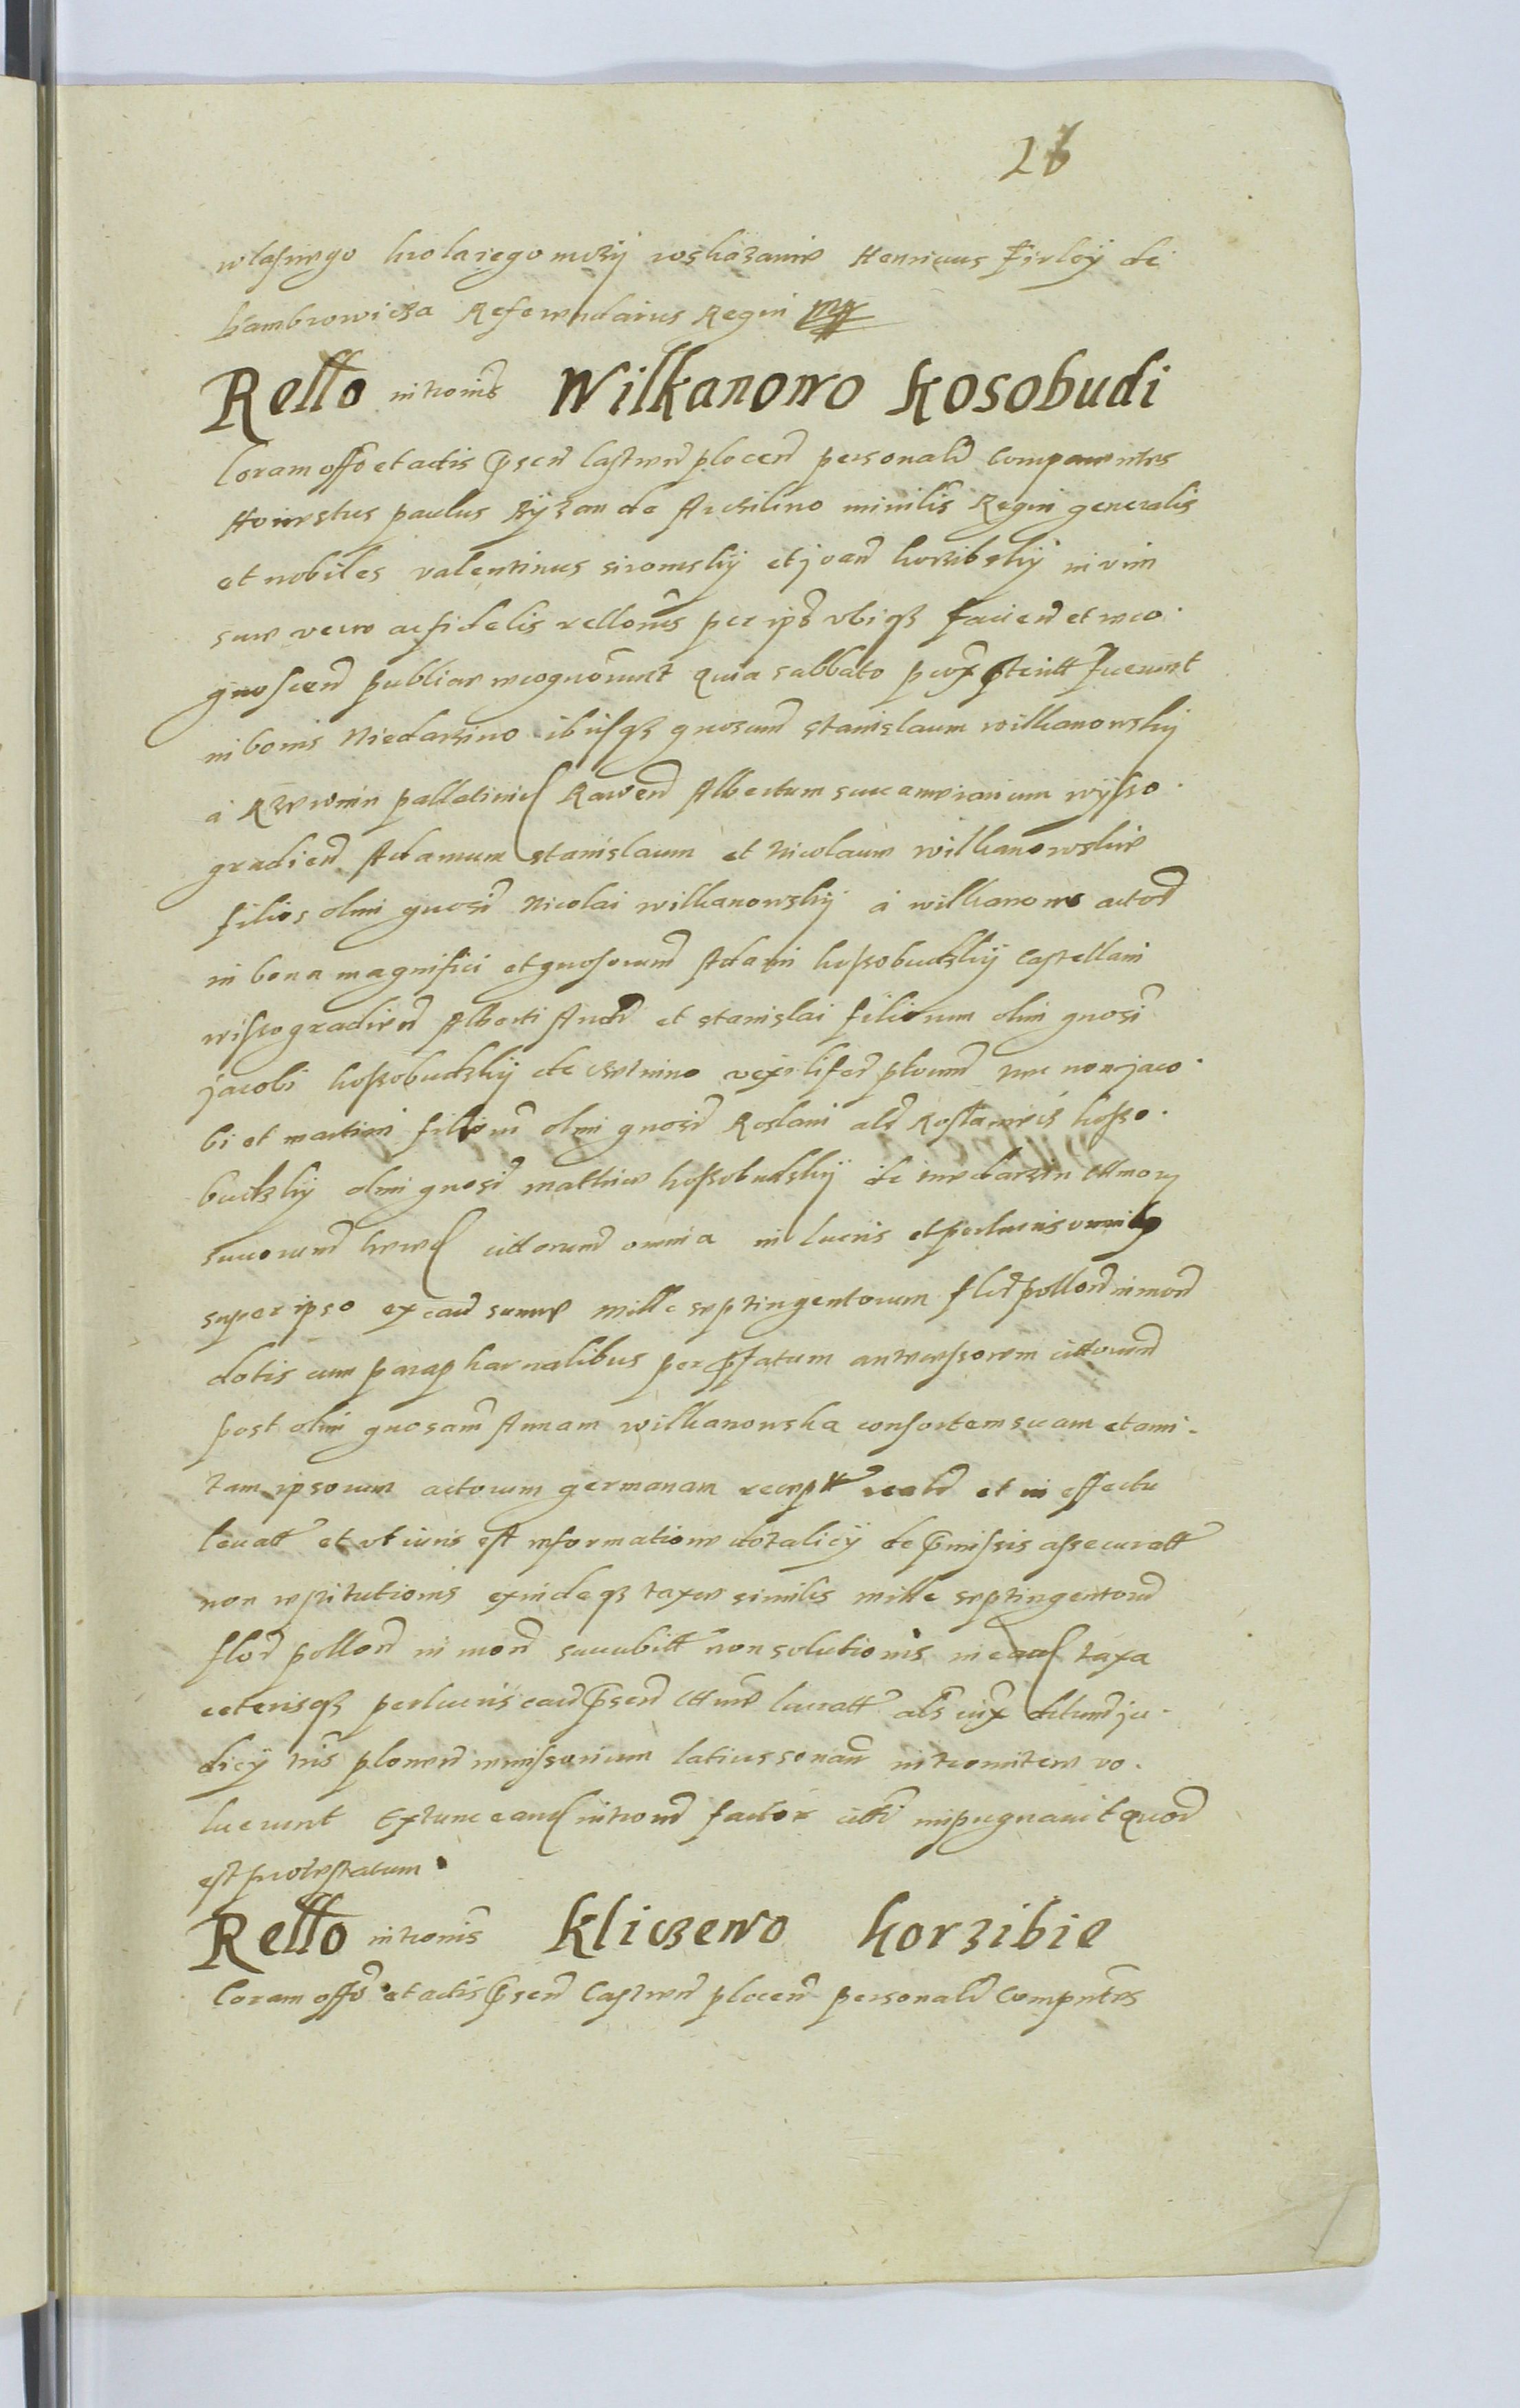 26
wlasnego krolaiego mczij roskazanie Henricus Firleij de
Dambrowicza Referendarius Regni mp
Rello intronis Wilkanowo Kosobudi
Coram offo et actis psen Castren plocen personalr Comparentes
Honestus paulus de ministerialis Regni generalis
et nobiles valentinus sironskij et joan korzibskij in vim
sue vere ac fidelis rellonis per ips vbiqz facien et reco-
gnoscen publice recognorunt quia sabbato prox pteritt fuerunt
in bonis Niedarzino ibiqz gnosum stanislaum wilkanowskij
a pallatinid Rawen Albertum succamerarium wysso-
gradien Adamum stanislaum et Nicolaum wilkanowskie
filios olim gnosi Nicolai wilkanowskij a wilkanowo actor
in bona magnifici et gnosorum Adami kossobudzkij Castellani
wissogradien Alberti And et stanislai filiorum olim gnosi
jacobi kossobudzkij de vexilifer plocen nec non jaco-
bi et martini filiorum olim gnosi Roslani als Roslaniecz kosso-
budzkij olim gnosi mathie kossobudzkij de niedarzin
suuorum cittorum omnia in lucris et perlucris omnibz
super ipso ex caus summe mille septingentorum flor pollon in mon
dotis cum parapharnalibus per pfatum antecessorem cittorum
post olim gnosam Annam wilkanowska consortem suam et ami-
tam ipsorum actorum germanam recept realr et in effectu
leuatt et vt iuris est reformatione dotalicij de pmissis assecuratt
non restitutionis exindeqz taxe similis mille septingentorum
flor pollon in mon succubitt non solutionis in taxa
ceterisqz perlucris caus psen lucratt als iux ditum ju-
dicij tris plocen remissorium latius sonan intromitere vo-
luerunt Extunc intron factor citti impugnauit quod
est protestatum
Rello intronis Kliczewo Korzibie
Coram offo et actis psen Castren plocen personalr Compntes